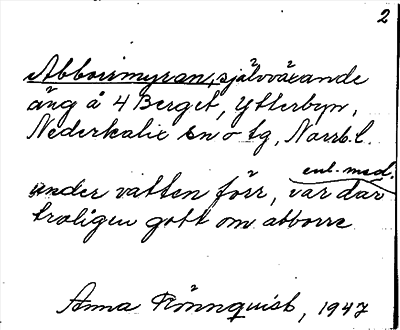 2
Abborrmyran, självväxande
äng å 4 Berget, Ytterbyn,
Nederkalix sn o tg, Norrb. l.
enl. med.
under vatten förr, var där
troligen gott om abborre
Anna Rönnquist, 1947